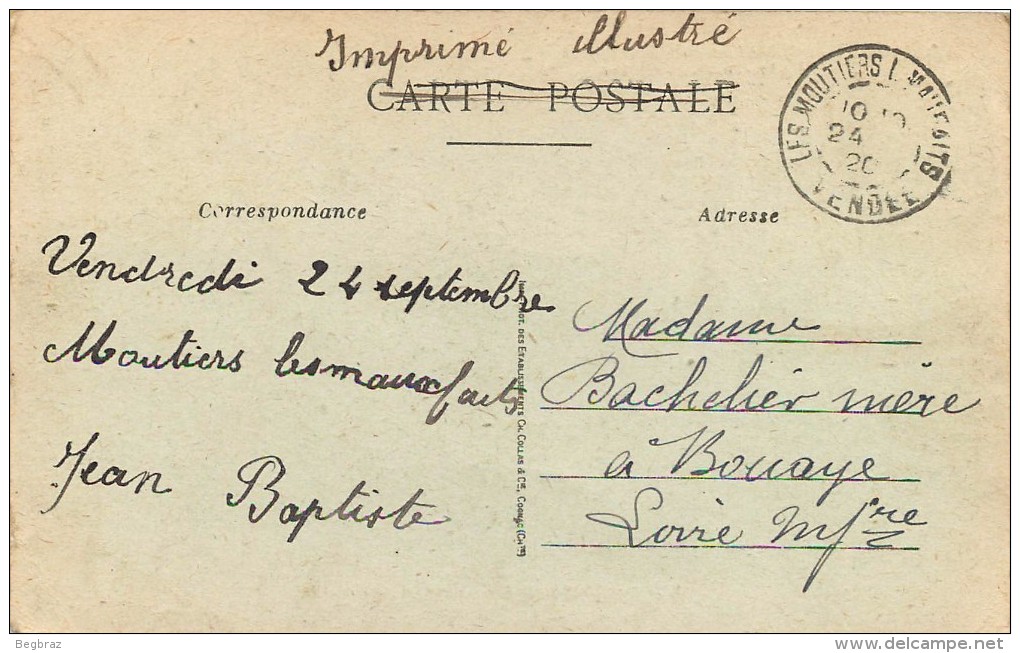 Imprimé illustré
CARTE POSTALE
LES MOUTIERS L. MAUFAITS
24
20
VENDEE
Correspondance
Vendredi 24 septembre
Moutiers lesmauxfaits
Jean Baptiste
DES ETABLISSEMENTS CH. COLLAS & Cie, COGNAC (Chte)
Adresse
Madame
Bachelier mère
à Bouaye
Loire Mfre
Begbraz
www.delcampe.net